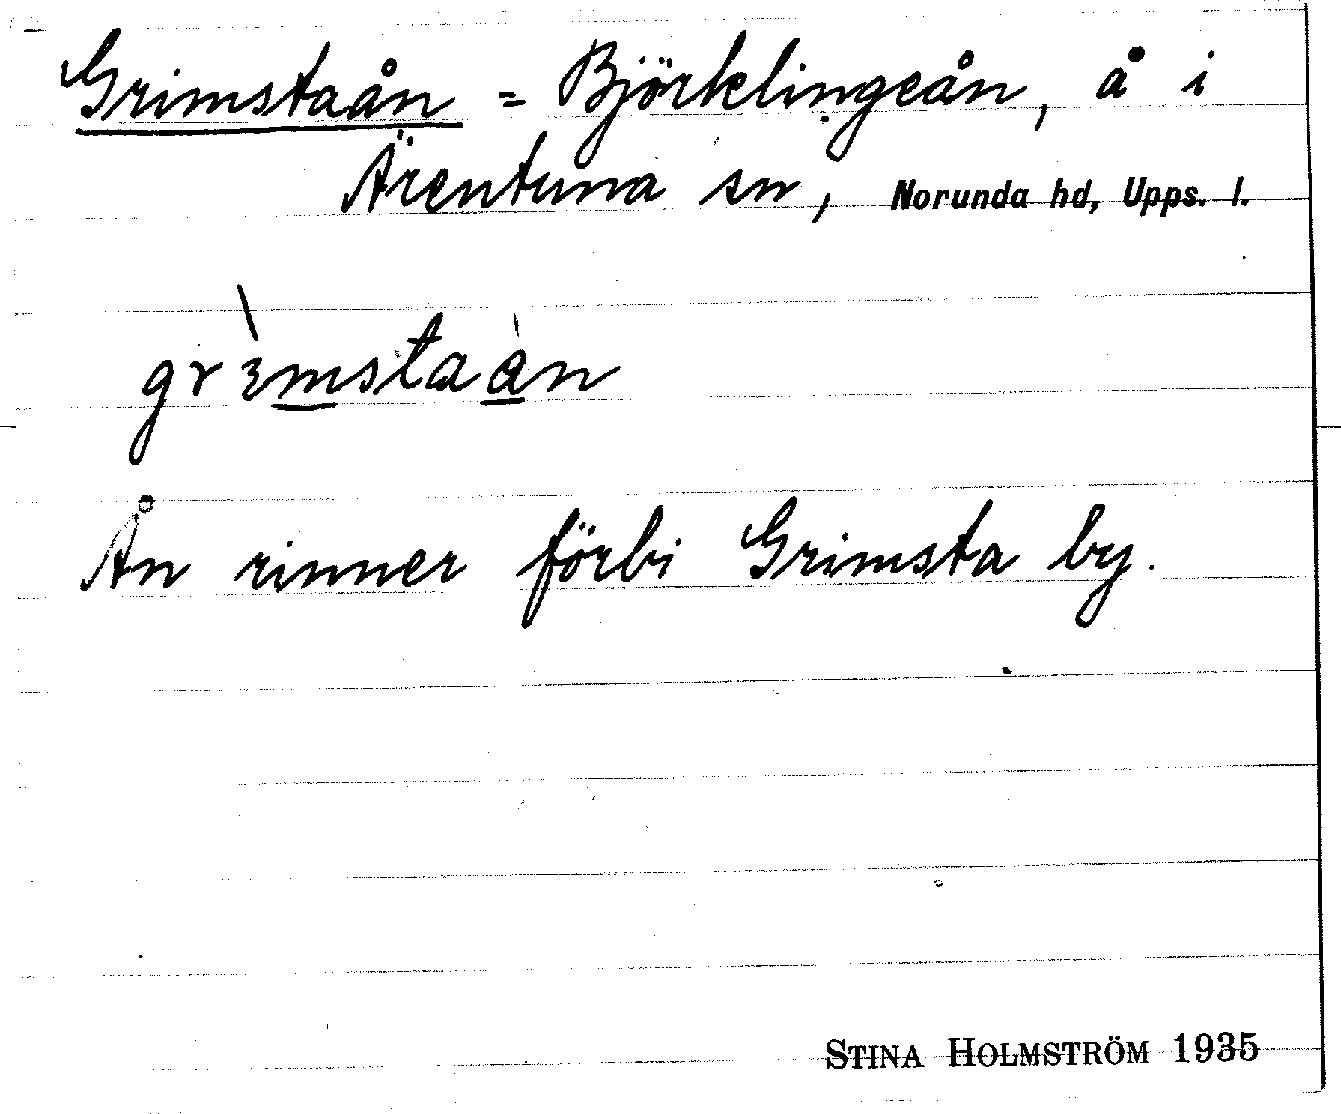 Grimstaån = Björklingeån, å i
Ärentuna sn, Norunda hd, Upps. l.
grɛ̀mstaàn
Ån rinner förbi Grimsta by.
STINA HOLMSTRÖM 1935